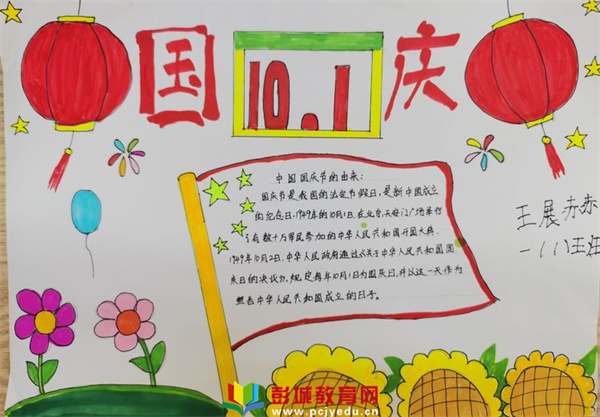 国 10.1 庆
中国国庆节的由来:
国庆节是我国的法定节假日,是新中国成立
的纪念日,1949年的10月1日,在北京天安门广场举行
了有数十万军民参加的中华人民共和国开国大典,
1949年10月2日,中华人民政府通过《关于中华人民共和国国
庆日的决议》,规定每年10月1日为国庆日,并以这一天作为
中华人民共和国成立的日子。
王展
彭城教育网
www.pcjyedu.cn